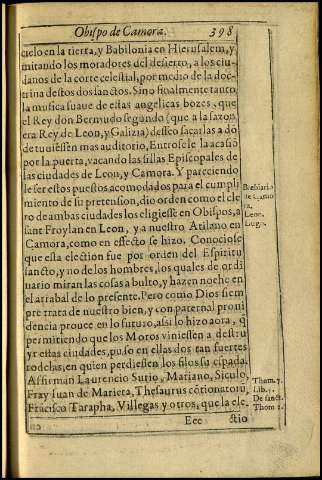 Obispo de Camora. 398
cielo en la tierra, y Babilonia en Hierusalem, y
mitando los moradores del desierto, a los ciu-
danos de la corte celestial, por medio de la doc-
trina destos dos sanctos. Sino finalmente tanto
la musica suaue de estas angelicas bozes, que
el Rey don Bermudo segundo (que a la sazon
era Rey de Leon, y Galizia) desseo sacarlas a dõ
de tuuiessen mas auditorio, Entrosele la ocasiõ
por la puerta, vacando las sillas Episcopales de
las ciudades de Leon, y Camora. Y pareciendo
le ser estos puestos acomodados para el cumpli
miento de su pretension, dio orden como el cle
ro de ambas ciudades los eligiesse en Obispos, a
sant Froylan en Leon, y a nuestro Atilano en
Camora, como en effecto se hizo. Conociose
que esta election fue por orden del Espiritu
sancto, y no de los hombres, los quales de ordi
nario miran las cosas a bulto, y hazen noche en
el arrabal de lo presente. Pero como Dios siem
pre trata de nuestro bien, y con paternal proui
dencia prouee en lo futuro, assi lo hizo aora, q̃
permitiendo que los Moros viniessen a destru
yr estas ciudades, puso en ellas dos tan fuertes
rodelas, en quien perdiessen los filos su espada.
Affirman Laurencio Surio, Mariano, Siculo,
Fray Juan de Marieta, Thesaurus cõtionatorũ,
Frãcisco Tarapha, Villegas y otros, que la ele-
Eee ctio
Breuiario
de Camo
ra.
Leon.
Lugo.
Thom. 7.
Lib. 5.
De sanct.
Thom 2.